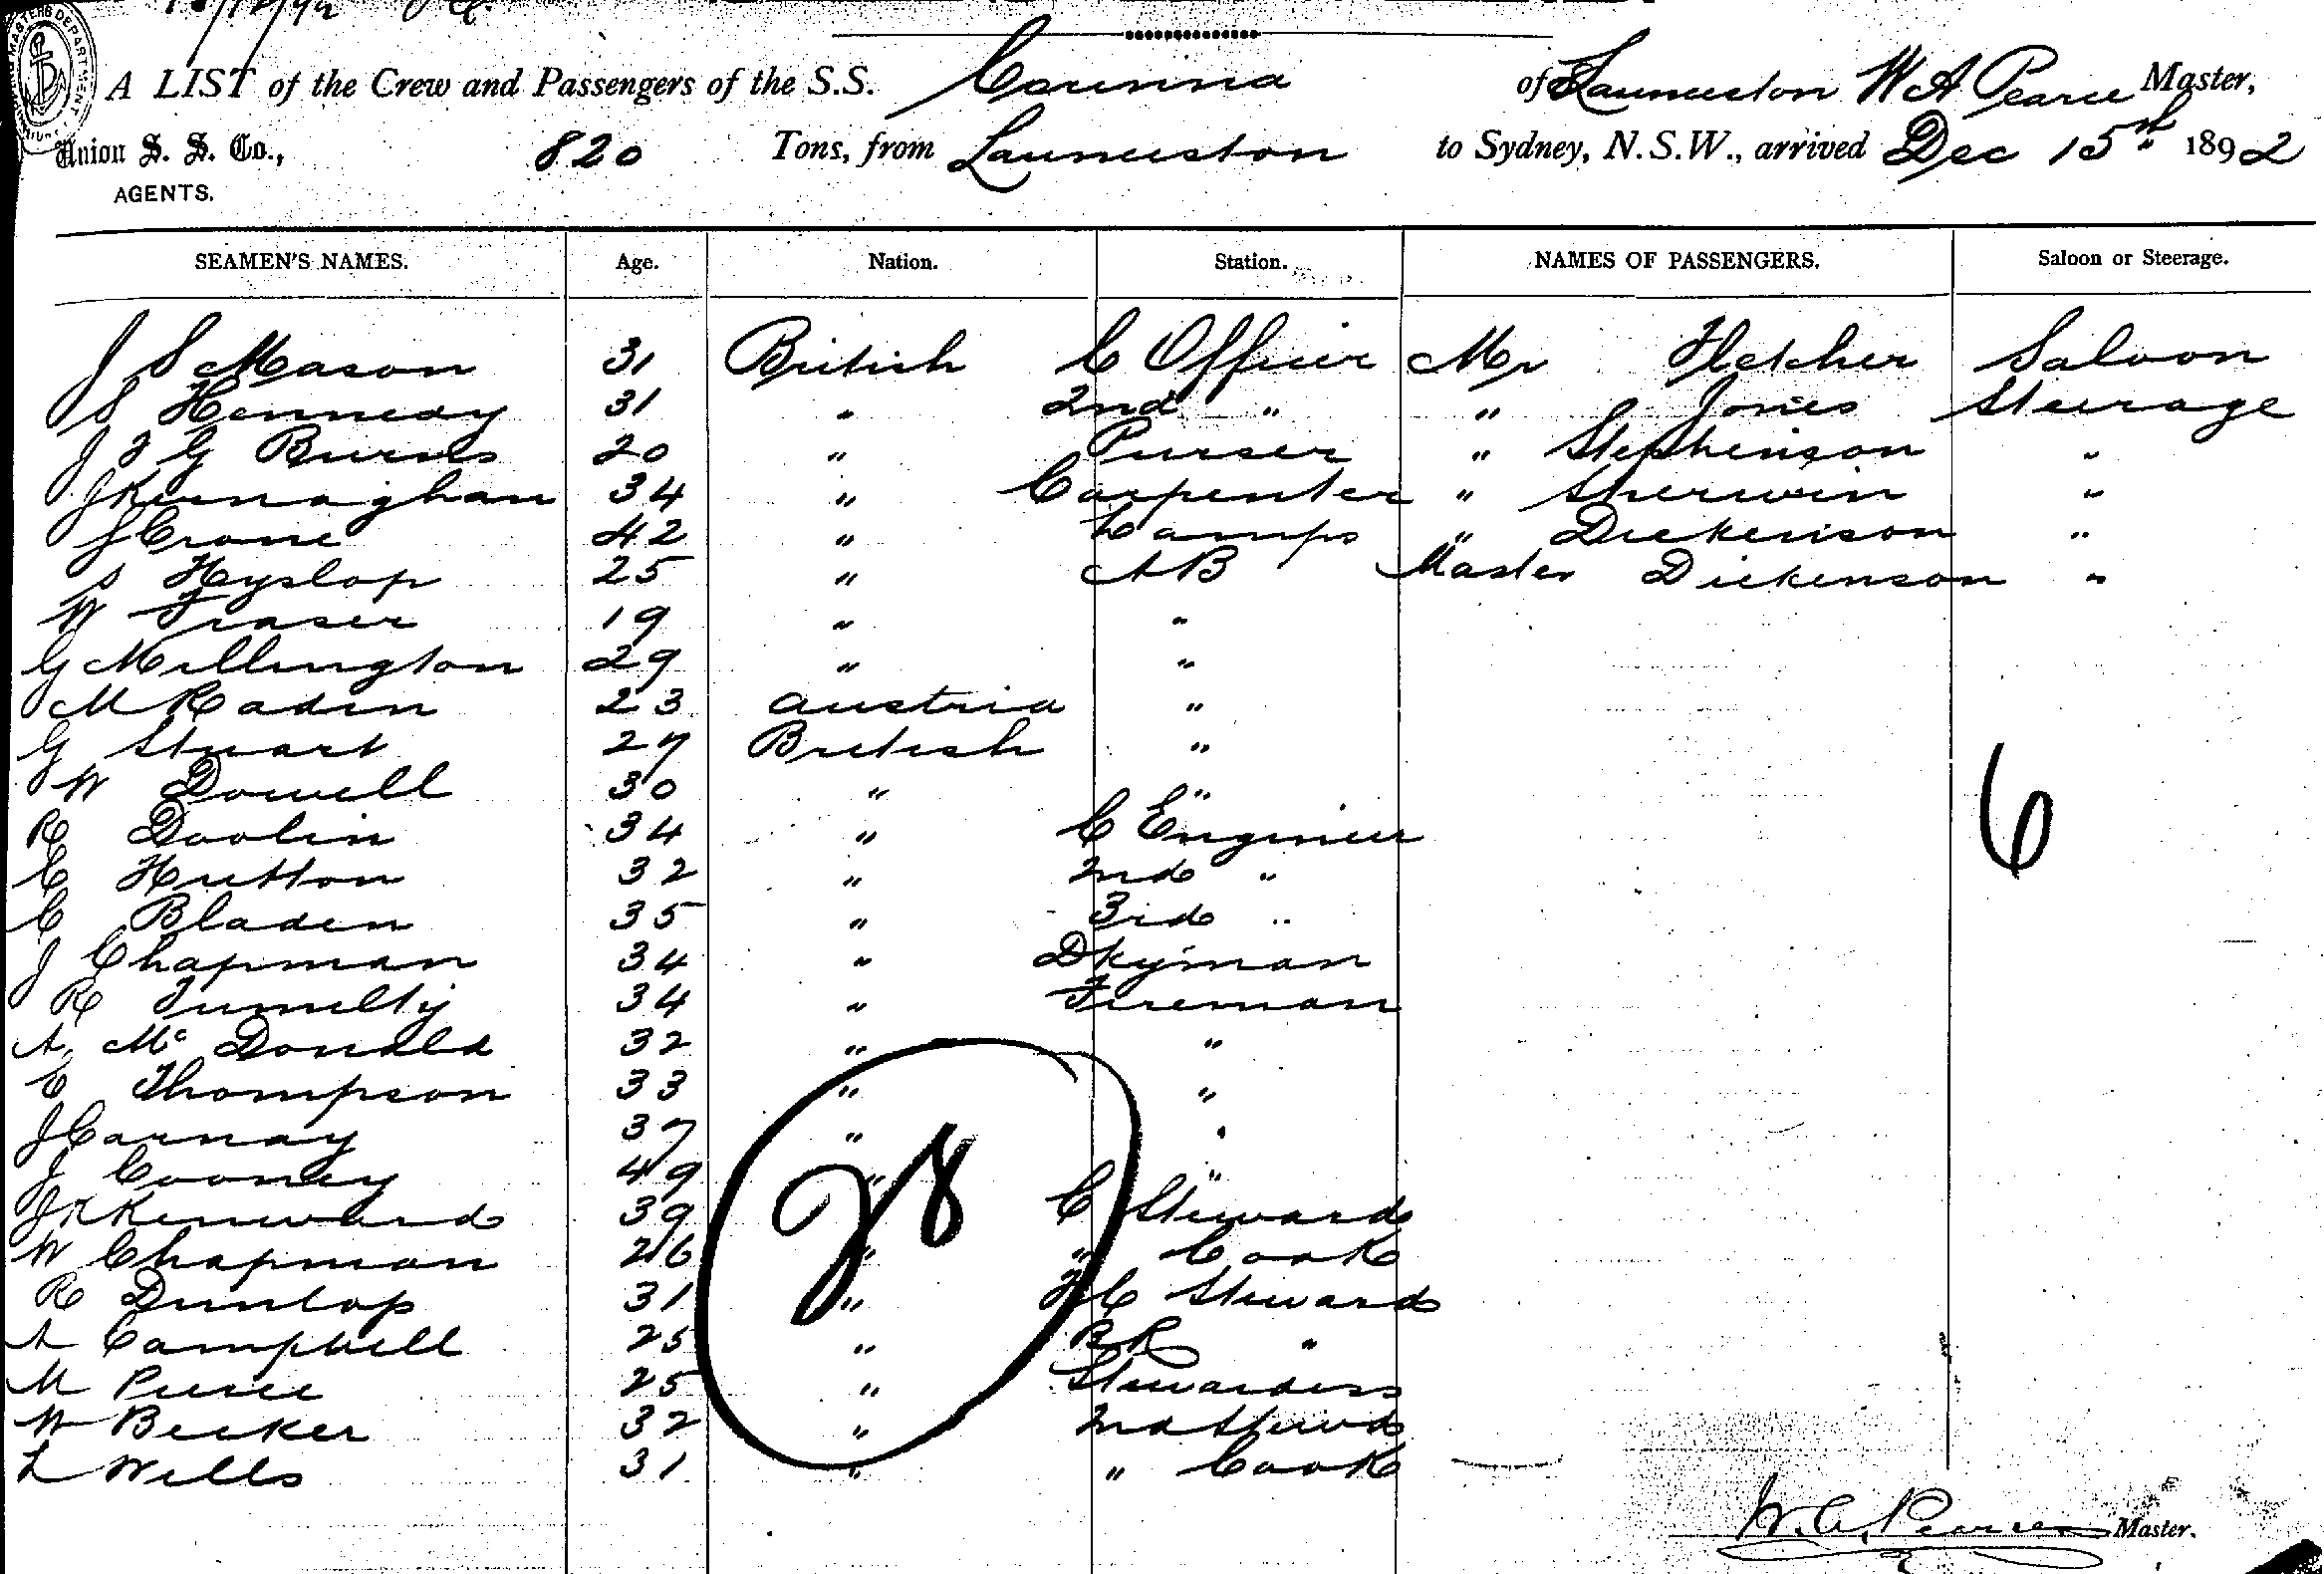 15/12/92
A LIST of the Crew and Passengers of the S.S. Corinna of Launceston W A Pearce Master,
Union S. S. Co., 820 Tons, from Launceston to Sydney, N.S.W., arrived Dec 15th 1892
AGENTS.
SEAMEN'S NAMES. Age. Nation. Station. NAMES OF PASSENGERS. Saloon or Steerage.
J S Mason 31 British C Officer Mr Fletcher Saloon
S Kennedy 31 " 2nd " " Jones Steerage
J F G Burns 20 " Purser " Stephenson "
J Kernaghan 34 " Carpenter " Sherwin "
J Crone 42 " Lamps " Dickenson "
S Hyslop 25 " AB Master Dickenson "
W Fraser 19 " "
G Millington 29 " "
M Radin 23 Austria "
G Stuart 27 British "
W Dowell 30 " "
R Doolin 34 " C Engineer
C Hutton 32 " 2nd "
C Bladen 35 " 3rd "
J Chapman 34 " Dkyman
R Tumelty 34 " Fireman
A McDonald 32 " "
E Thompson 33 " "
J Carnay 37 " "
J Cooney 49 " "
J R Kenward 39 " C Steward
W Chapman 26 " " Cook
R Dunlop 31 " F C Steward
A Campbell 25 " B R "
M Pierce 25 " Stewardess
W Becker 32 " 2nd Steward
L Wells 31 " " Cook
6
28
W. A. Pearce Master.